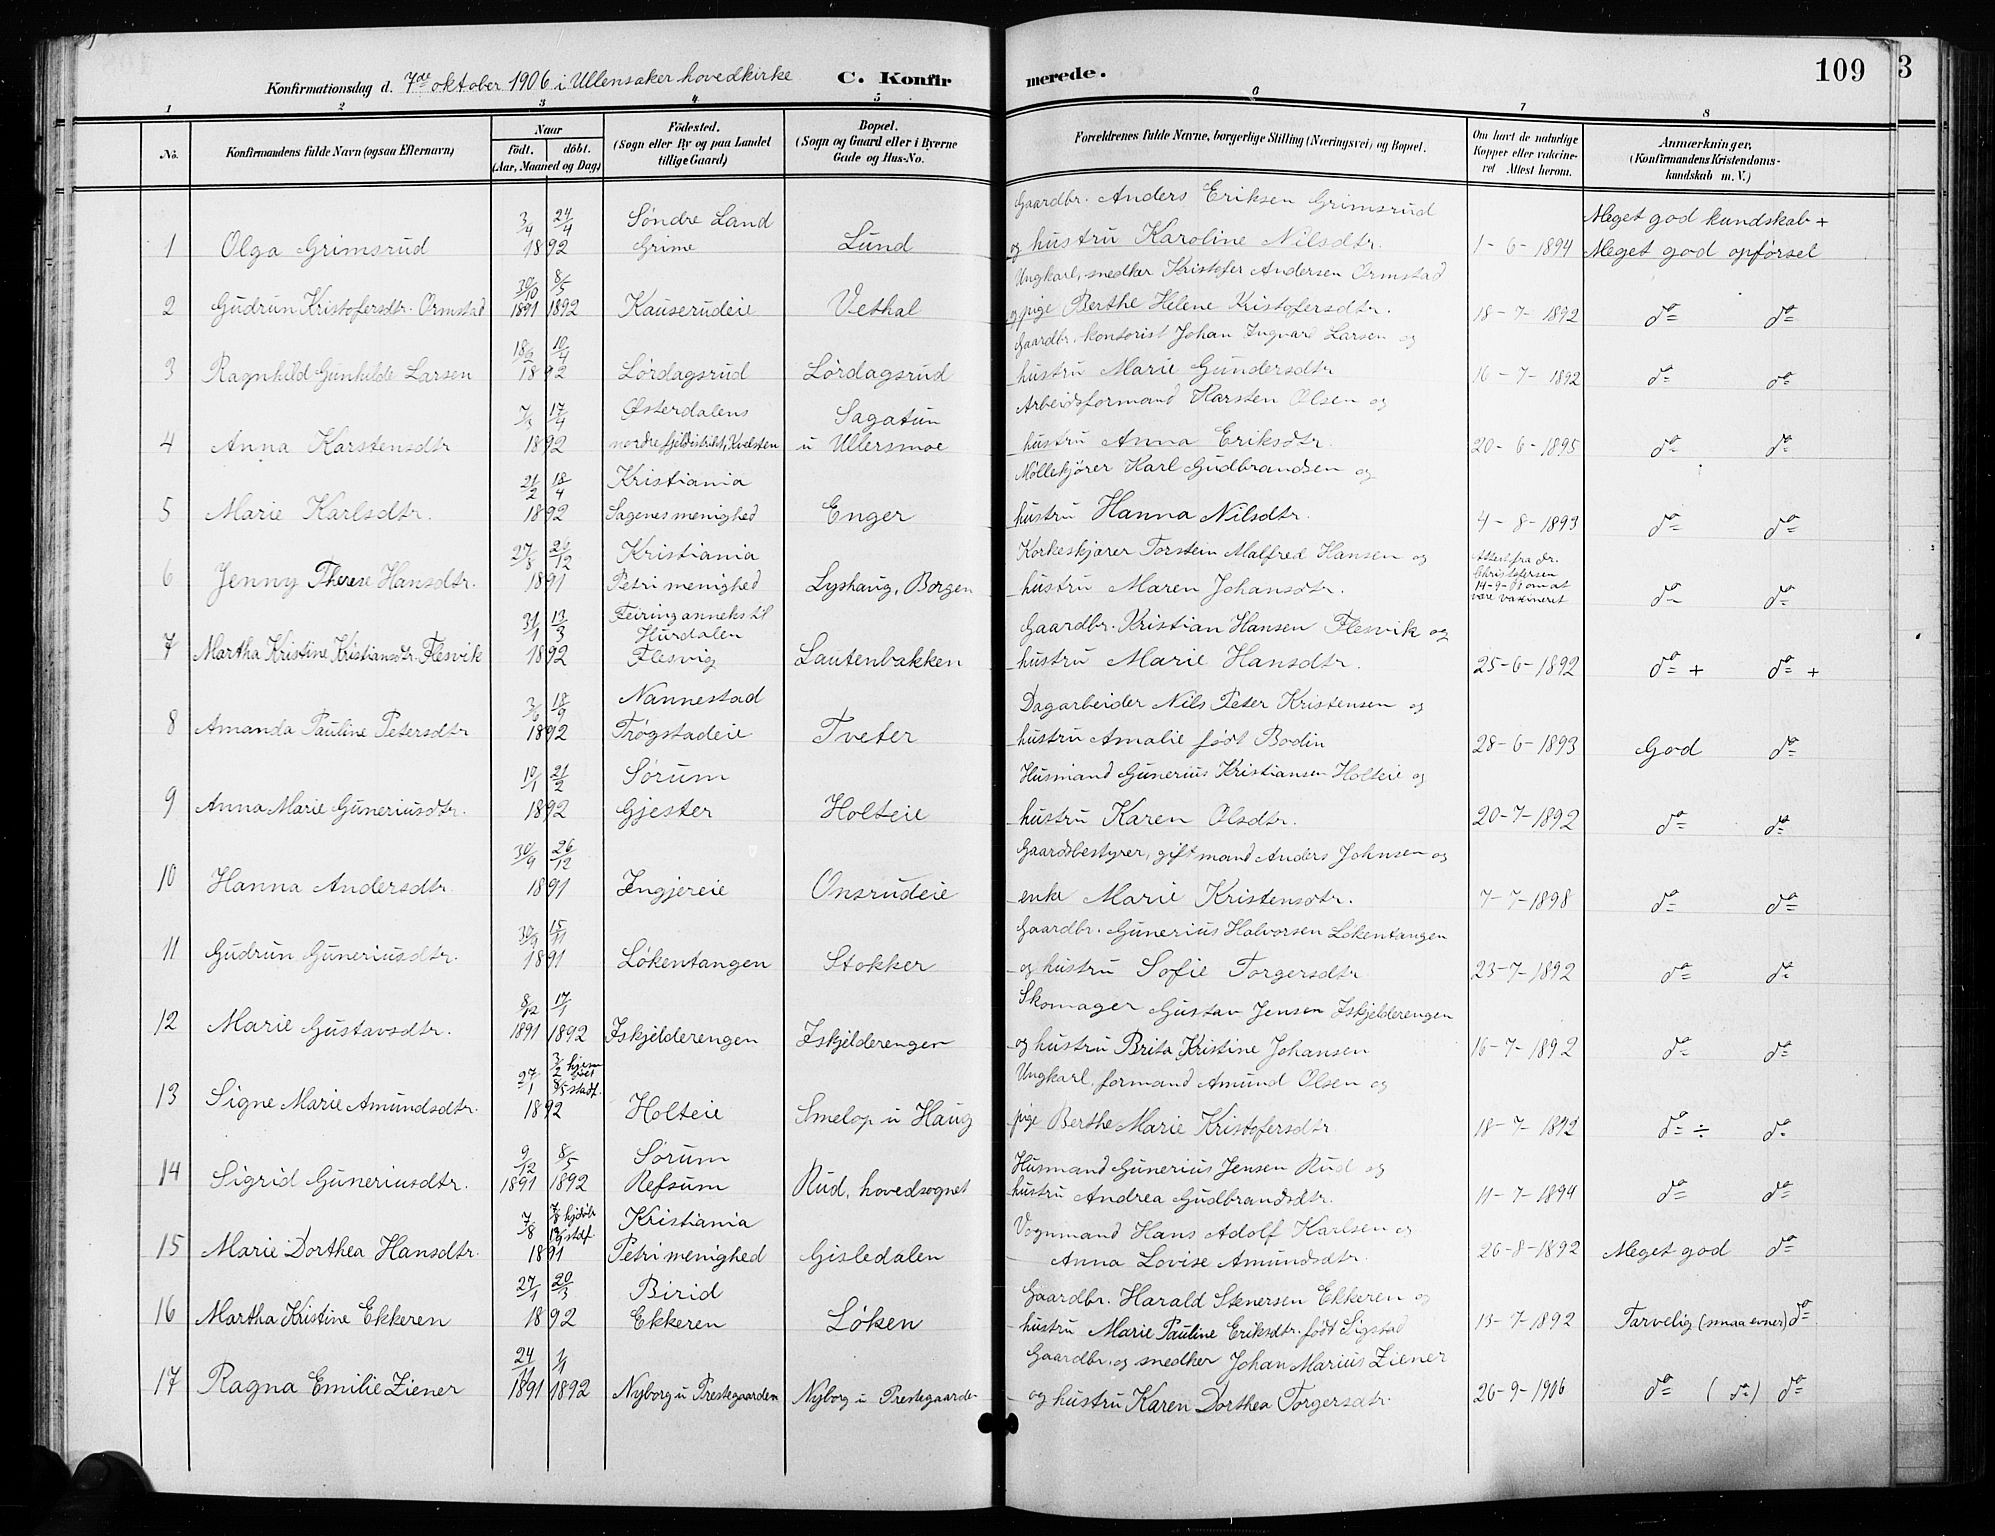 109
3
Konfirmationsdag d. 7de oktober 1906 i Ullensaker hovedkirke C. Konfirmerede.
1 2 3 4 5 6 7 8
No.
Konfirmandens fulde Navn (ogsaa Efternavn)
Naar
födt. döbt.
(Aar, Maaned og Dag)
Födested.
(Sogn eller By og paa Landet
tillige Gaard)
Bopæl.
(Sogn og Gaard eller i Byerne
Gade og Hus-No.
Forældrenes fulde Navne, borgerlige Stilling (Næringsvei) og Bopæl.
Om havt de naturlige
Kopper eller vakcine-
ret Attest herom.
Anmærkninger,
(Konfirmandens Kristendoms-
kundskab m. V.)
3/4 24/4 Søndre Land Gaardbr. Anders Eriksen Grimsrud Meget god kundskab +
1 Olga Grimsrud 1892 Grime Lund og hustru Karoline Nilsdtr. 1-6-1894 Meget god opførsel
30/10 8/5 Ungkarl, snedker Kristofer Andersen Ormstad
2 Gudrun Kristofersdtr. Ormstad 1891 1892 Kauserudeie Vethal og pige Berthe Helene Kristofersdtr. 18-7-1892 do do
10/4 Gaardbr. kontorist Johan Ingvard Larsen og
3 Ragnhild Gunhilde Larsen 1892 Lørdagsrud Lørdagsrud hustru Marie Gundersdtr 16-7-1892 do do
7/3 17/4 Østerdalens Sagatun Arbeidsformand Karsten Olsen og
4 Anna Karstensdtr 1892 nordre fjelddistrikt, u Ullersmoe hustru Anna Eriksdtr. 20-6-1895 do do
21/2 18/4 Kristiania Møllekjører Karl Gudbrandsen og
5 Marie Karlsdtr. 1892 Sagenes menighed Enger hustru Hanna Nilsdtr. 4-8-1893 do do
27/8 26/12 Kristiania Korkeskjærer Torstein Malfred Hansen og Attest fra dr.
Christofersen
6 Jenny Therese Hansdtr. 1891 Petri menighed Lyshaug, Borgen hustru Maren Johansdtr. 14-9-01 om at
være vaxineret do do
31/1 13/3 Feiring anneks til
Hurdalen Gaardbr. Kristian Hansen Flesvik og
7 Martha Kristine Kristiansdtr. Flesvik 1892 Flesvig Lautenbakken hustru Marie Hansdtr. 25-6-1892 do + do +
3/6 18/9 Nannestad Dagarbeider Nils Peter Kristensen og
8 Amanda Pauline Petersdtr 1892 Trøgstadeie Tveter hustru Amalie født Bodin 28-6-1893 God do
10/1 21/2 Sørum Husmand Gunerius Kristiansen Holteie og
9 Anna Marie Guneriusdtr. 1892 Gjester Holteie hustru Karen Olsdtr. 20-7-1892 do do
30/9 26/12 Gaardsbestyrer, gift mand Anders Johnsen og
10 Hanna Andersdtr. 1891 Ingjereie Onsrudeie enke Marie Kristensdtr. 7-7-1898 do do
30/9 15/11 Gaardbr. Gunerius Halvorsen Løkentangen
11 Gudrun Guneriusdtr. 1891 Løkentangen Stokker og hustru Sofie Torgersdtr 23-7-1892 do do
8/12 17/1 Skomager Gustav Jensen Iskjelderengen
12 Marie Gustavsdtr. 1891 1892 Iskjelderengen Iskjelderengen og hustru Brita Kristine Johansen 16-7-1892 do do
27/1 3/2 hjem
døbt
8/5 stadf. Ungkarl, formand Amund Olsen og
13 Signe Marie Amundsdtr. 1892 Holteie Smelop u Haug pige Berthe Marie Kristofersdtr. 18-7-1892 do ÷ do
9/12 8/5 Sørum Husmand Gunerius Jensen Rud og
14 Sigrid Guneriusdtr. 1891 1892 Refsum Rud, hovedsognet hustru Andrea Gudbrandsdtr. 11-7-1894 do do
7/8 Kristiania Vognmand Hans Adolf Karlsen og
15 Marie Dorthea Hansdtr. 1891 Petri menighed Gisledalen Anna Lovise Amundsdtr. 26-8-1892 Meget god do
27/1 20/3 Birid Gaardbr. Harald Stenersen Ekkeren og
16 Martha Kristine Ekkeren 1892 Ekkeren Løken hustru Marie Pauline Eriksdtr. født Sigstad 13-7-1892 Tarvelig (smaa evner) do
24/11 1/1 Gaardbr. og snedker Johan Marius Ziener
17 Ragna Emilie Ziener 1891 1892 Nyborg u Prestegaarden Nyborg u Prestegaarde og hustru Karen Dorthea Torgersdtr. 26-9-1906 do (do) do